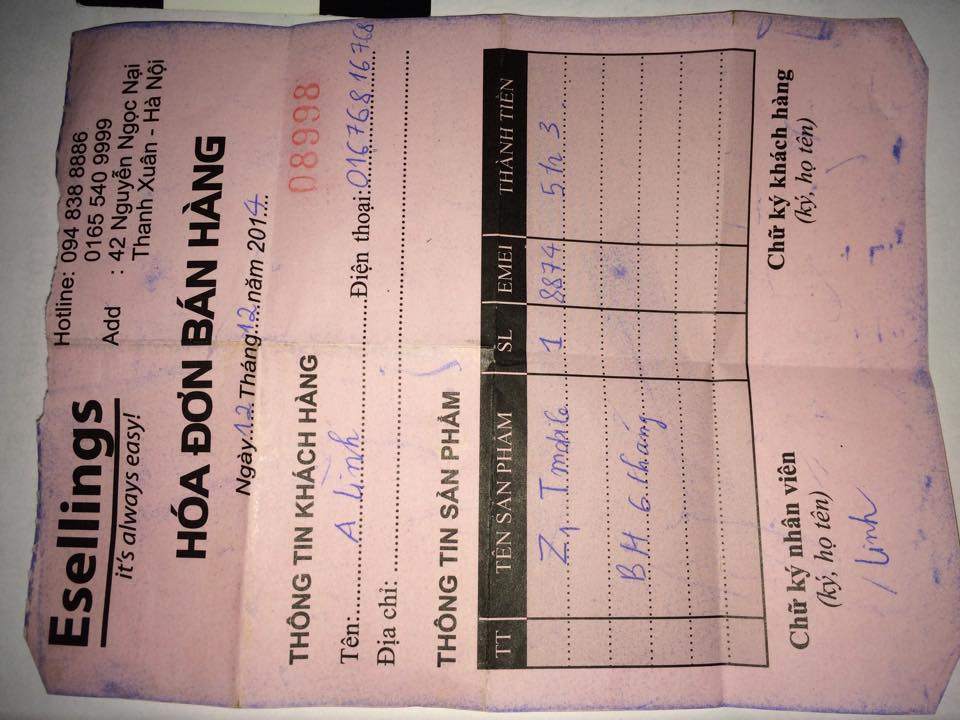 Esellings
it's always easy!
Hotline: 094 838 8886
0165 540 9999
Add : 42 Nguyễn Ngọc Nại
Thanh Xuân - Hà Nội
HÓA ĐƠN BÁN HÀNG
Ngày 12 Tháng 12 năm 2014
08998
THÔNG TIN KHÁCH HÀNG
Tên: A Linh Điện thoại: 01676816768
Địa chỉ:
THÔNG TIN SẢN PHẨM
TT TÊN SẢN PHẨM SL EMEI THÀNH TIỀN
Z1 Tmobile 1 8874 5tr3
BH 6 tháng
Chữ ký nhân viên Chữ ký khách hàng
(ký, họ tên) (ký, họ tên)
Linh